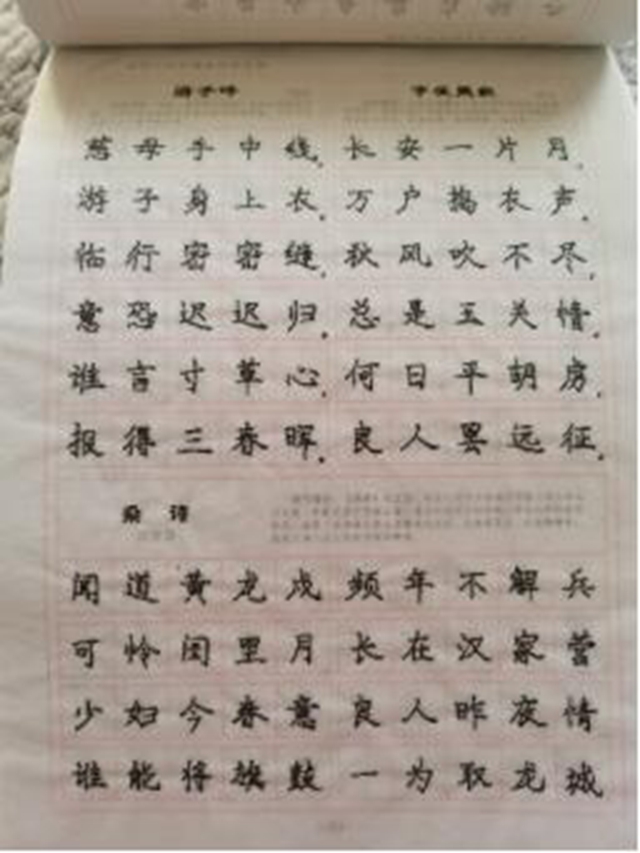 游子吟
慈母手中线，
游子身上衣。
临行密密缝，
意恐迟迟归。
谁言寸草心，
报得三春晖。
子夜吴歌
长安一片月，
万户捣衣声。
秋风吹不尽，
总是玉关情。
何日平胡房，
良人罢远征。
杂诗
闻道黄龙戍 频年不解兵
可怜闺里月 长在汉家营
少妇今春意 良人昨夜情
谁能将旗鼓 一为取龙城